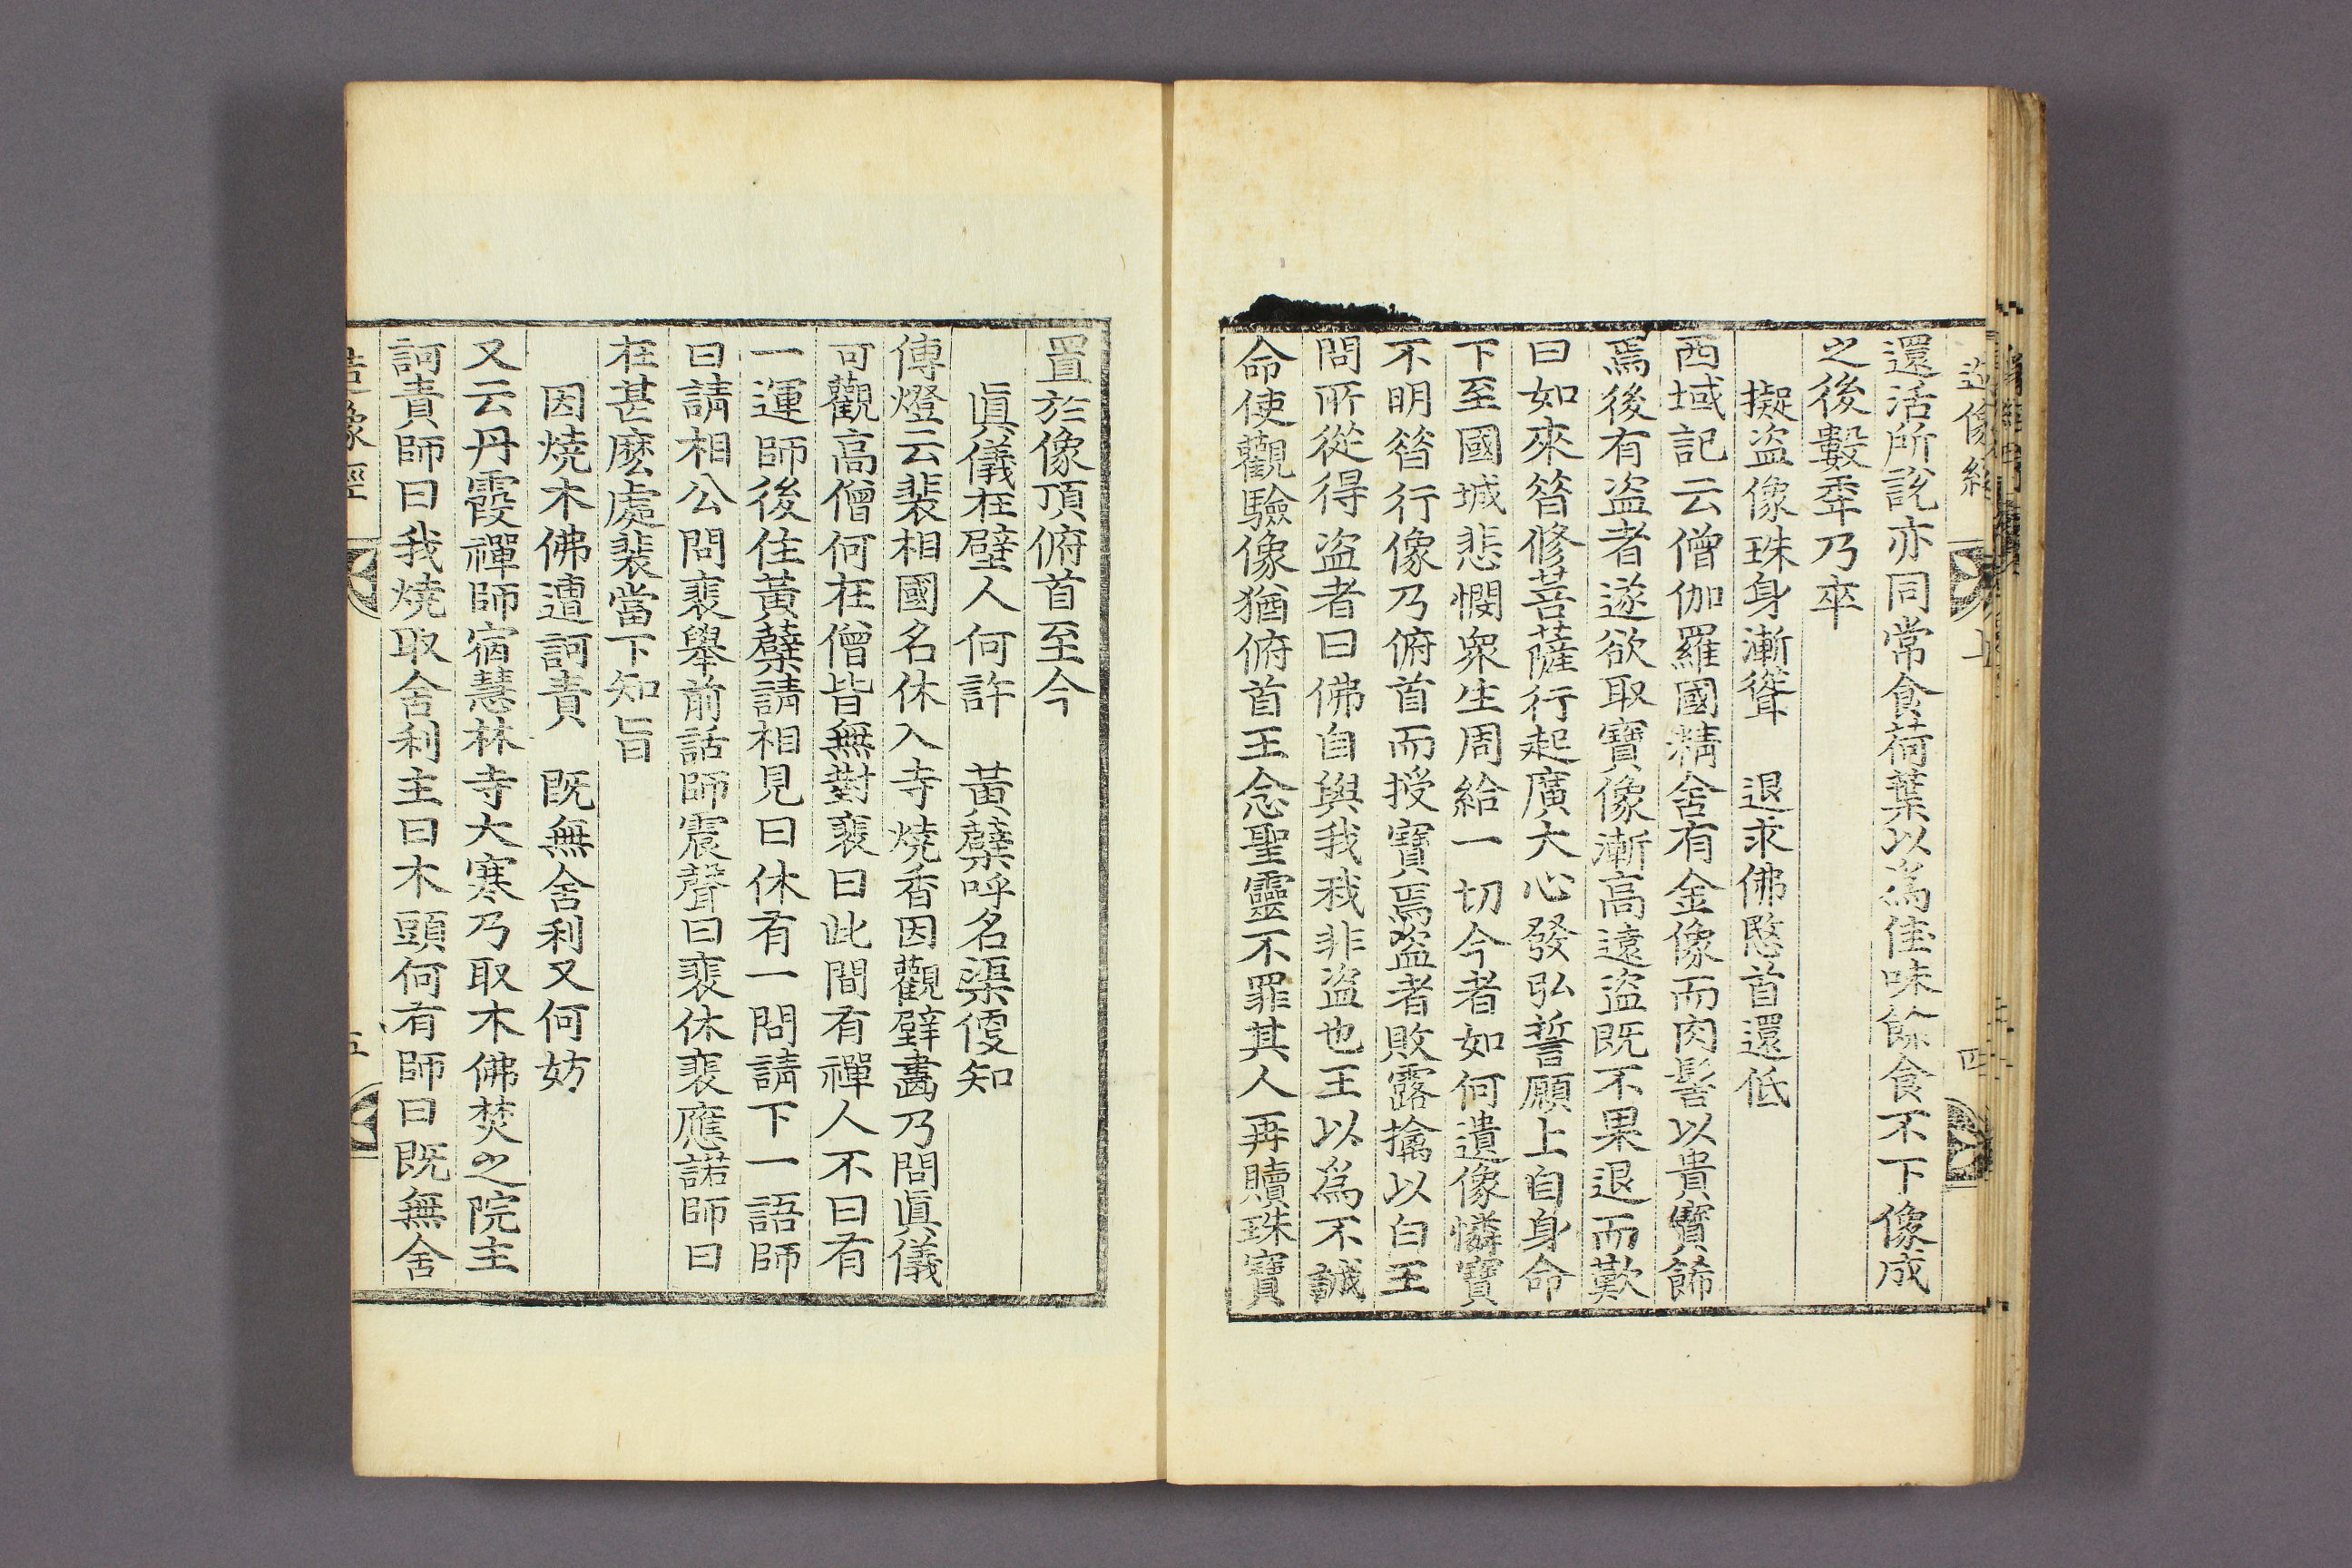 造像經 上 四
還活所說亦同常食荷葉以爲佳味餘食不下像成
之後數秊乃卒
擬盜像珠身漸聳 退求佛愍首還低
西域記云僧伽羅國精舍有金像而肉髻以貴寶餙
焉後有盜者遂欲取寶像漸高遠盜旣不果退而歎
曰如來昝修菩薩行起廣大心發弘誓願上自身命
下至國城悲憫衆生周給一切今者如何遺像憐寶
不明昝行像乃俯首而授寶焉盜者敗露擒以白王
問所從得盜者曰佛自與我我非盜也王以爲不誠
命使觀驗像猶俯首王念聖靈不罪其人再贖珠寶
置於像頂俯首至今
眞儀在壁人何許 黃蘗呼名渠便知
傳燈云裴相國名休入寺燒香因觀壁畵乃問眞儀
可觀高僧何在僧皆無對裴曰此間有禪人不曰有
一運師後住黃蘗請相見曰休有一問請下一語師
曰請相公問裴擧前話師震聲曰裴休裴應諾師曰
在甚麽處裴當下知旨
因燒木佛遭訶責 旣無舍利又何妨
又云丹霞禪師宿慧林寺大寒乃取木佛焚之院主
訶責師曰我燒取舍利主曰木頭何有師曰旣無舍
造像經 五